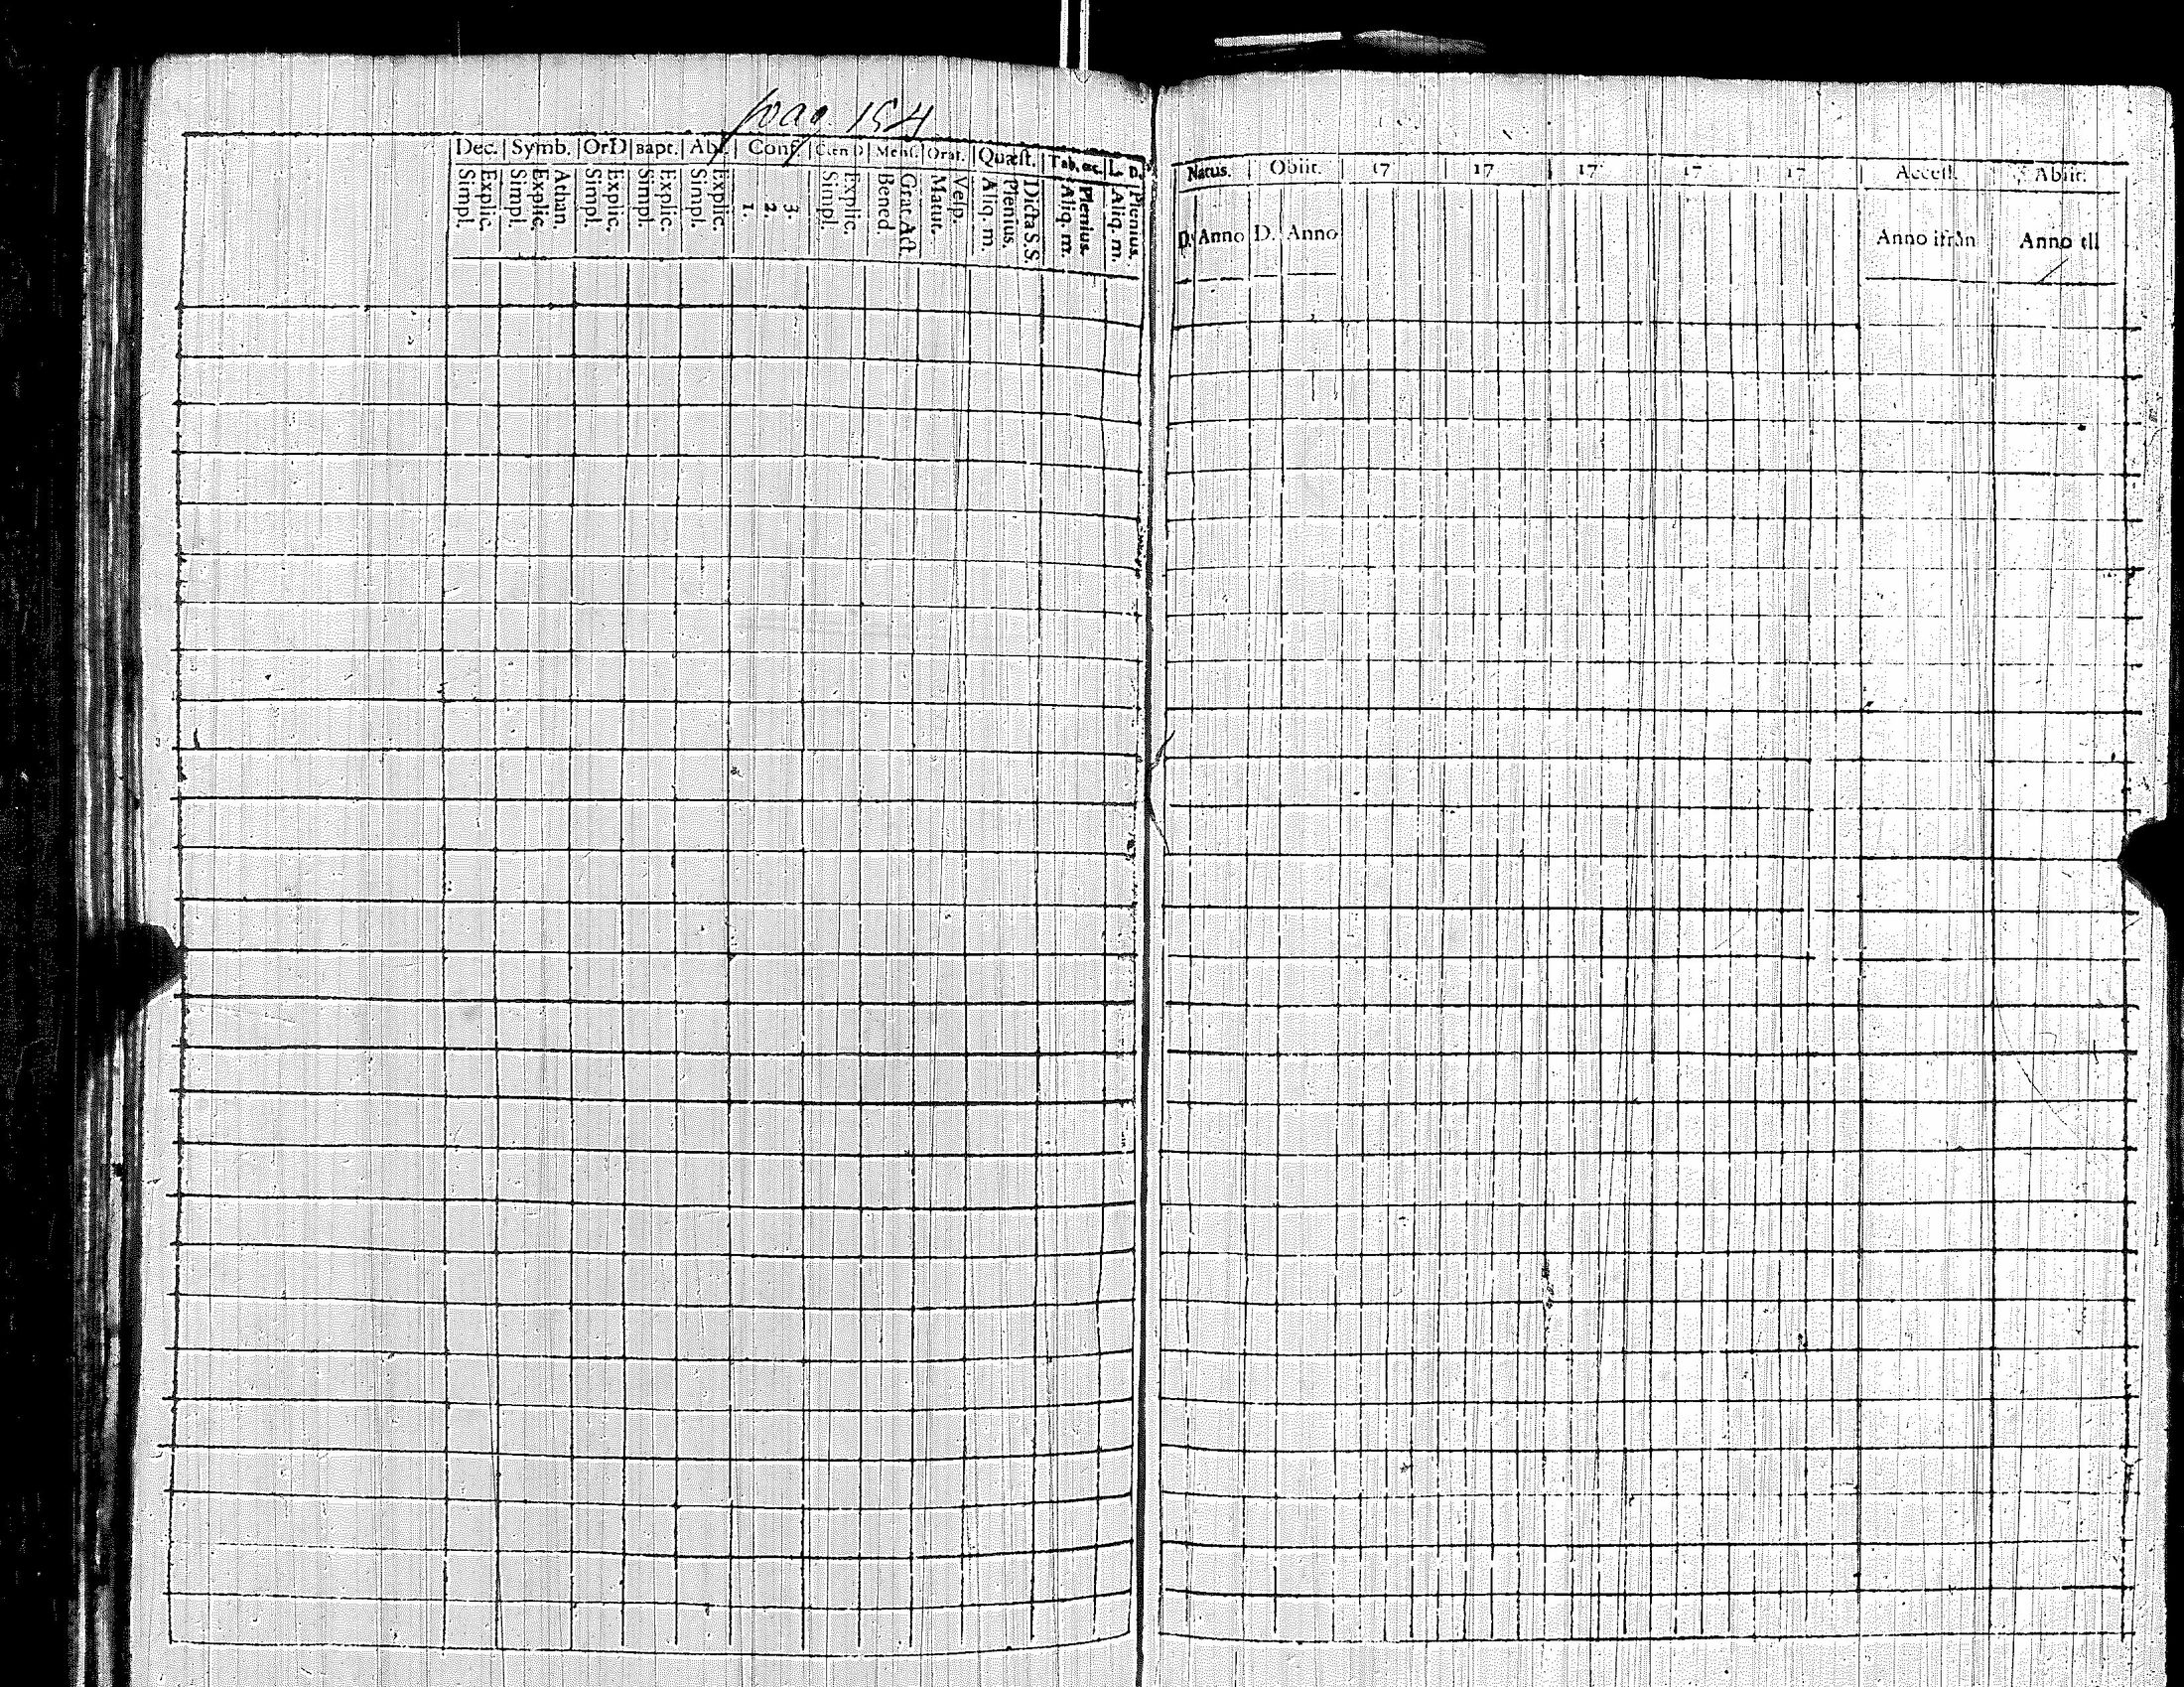 pag. 154
Dec. Symb. OrD Bapt. Abs. Conf. Cœn D Mens. Orat. Quæst. Tab. œc. L. D.
Simpl. Explic. Simpl. Explic. Athan. Simpl. Explic. Simpl. Explic. Simpl. Explic. 1. 2. 3. Simpl. Explic. Bened. Grat. Act. Matut. Vesp. Aliq. m. Plenius. Dicta S.S. Aliq. m. Plenius. Aliq. m. Plenius.
Natus. Obiit. 17 17 17 17 17 Access. Abiit.
D. Anno D. Anno Anno ifrån Anno till